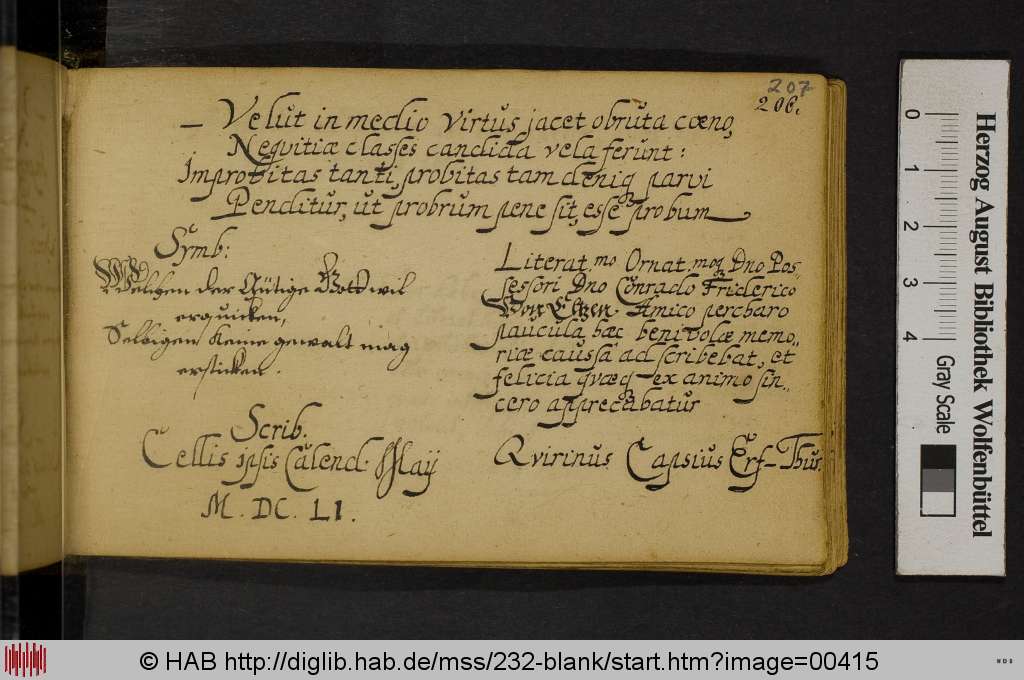 207
206.
Velut in medio virtus jacet obruta cœno,
Nequitiæ classes candida vela ferunt:
Improbitas tanti, probitas tam deniq parvi
Penditur, ut probrum pene sit, esse probum
Symb:
Welchen der Gütige Gott wil
erquicken,
Selbigen keine gewalt mag
ersticken.
Scrib.
Cellis ipsis Calend. Maÿ
M. DC. LI.
Literat.mo Ornat.moq Dno Pos-
sessori Dno Conrado Friderico
Von Eltzen. Amico percharo
paucula hæc benivolæ memo-
riæ caussa adscribebat, et
felicia quæq ex animo sin-
cero apprecabatur
Qvirinus Capsius Erf-Thur.
Herzog August Bibliothek Wolfenbüttel
Gray Scale
0
1
2
3
4
© HAB http://diglib.hab.de/mss/232-blank/start.htm?image=00415